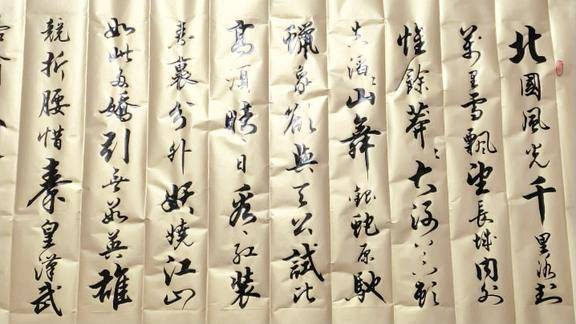 北國風光千里冰封
萬里雪飄望長城内外
惟餘莽〻大河上下頓
失滔〻山舞銀蛇原馳
蠟象欲與天公試比
高須晴日看紅裝
素裹分外妖嬈江山
如此多嬌引無數英雄
競折腰惜秦皇漢武